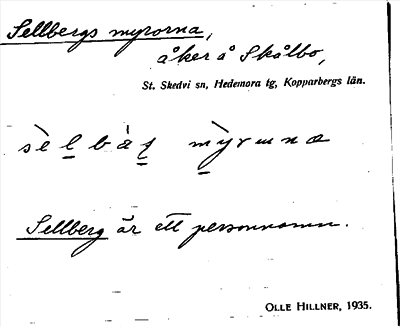 Sellbergs myrorna,
åker å Skålbo,
St. Skedvi sn, Hedemora tg, Kopparbergs län.
Sellberg är ett personnamn.
OLLE HILLNER, 1935.